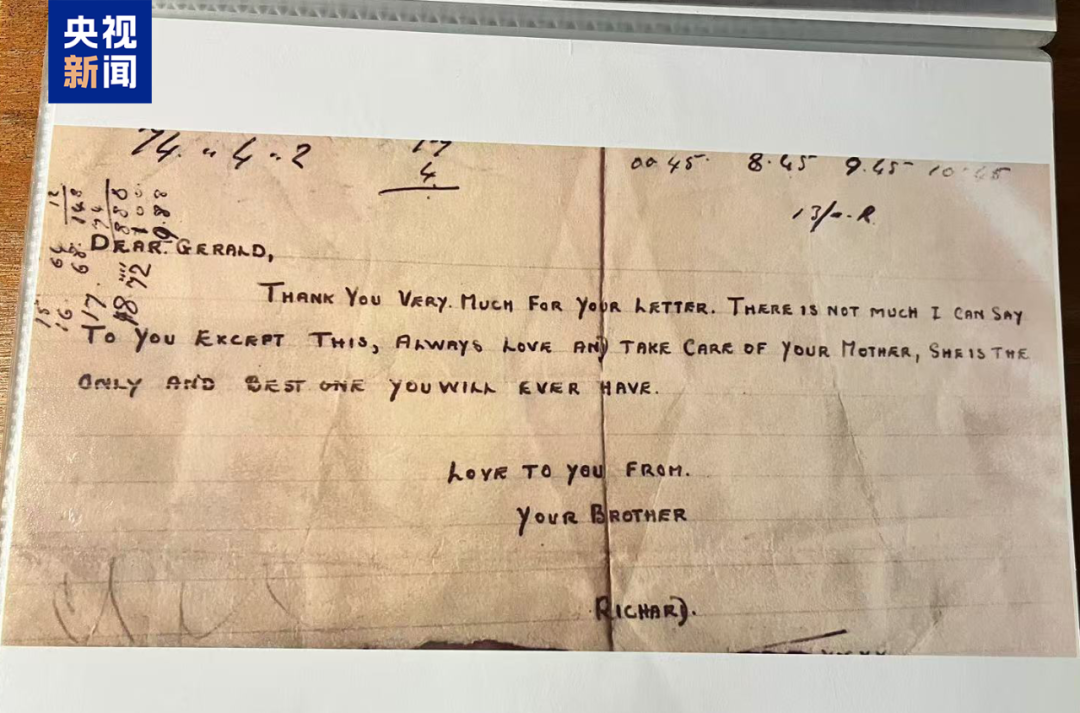 央视
新闻
74. " 4 " 2
17
4.
00 45. 8.45 9.45 10.45
13/-. R.
12
148
74
888
100
988
DEAR. GERALD,
66
68.
72
15
16.
17.
18
THANK YOU VERY. MUCH FOR YOUR LETTER. THERE IS NOT MUCH I CAN SAY
TO YOU EXCEPT THIS, ALWAYS LOVE AND TAKE CARE OF YOUR MOTHER, SHE IS THE
ONLY AND BEST ONE YOU WILL EVER HAVE.
LOVE TO YOU FROM.
YOUR BROTHER
RICHARD.